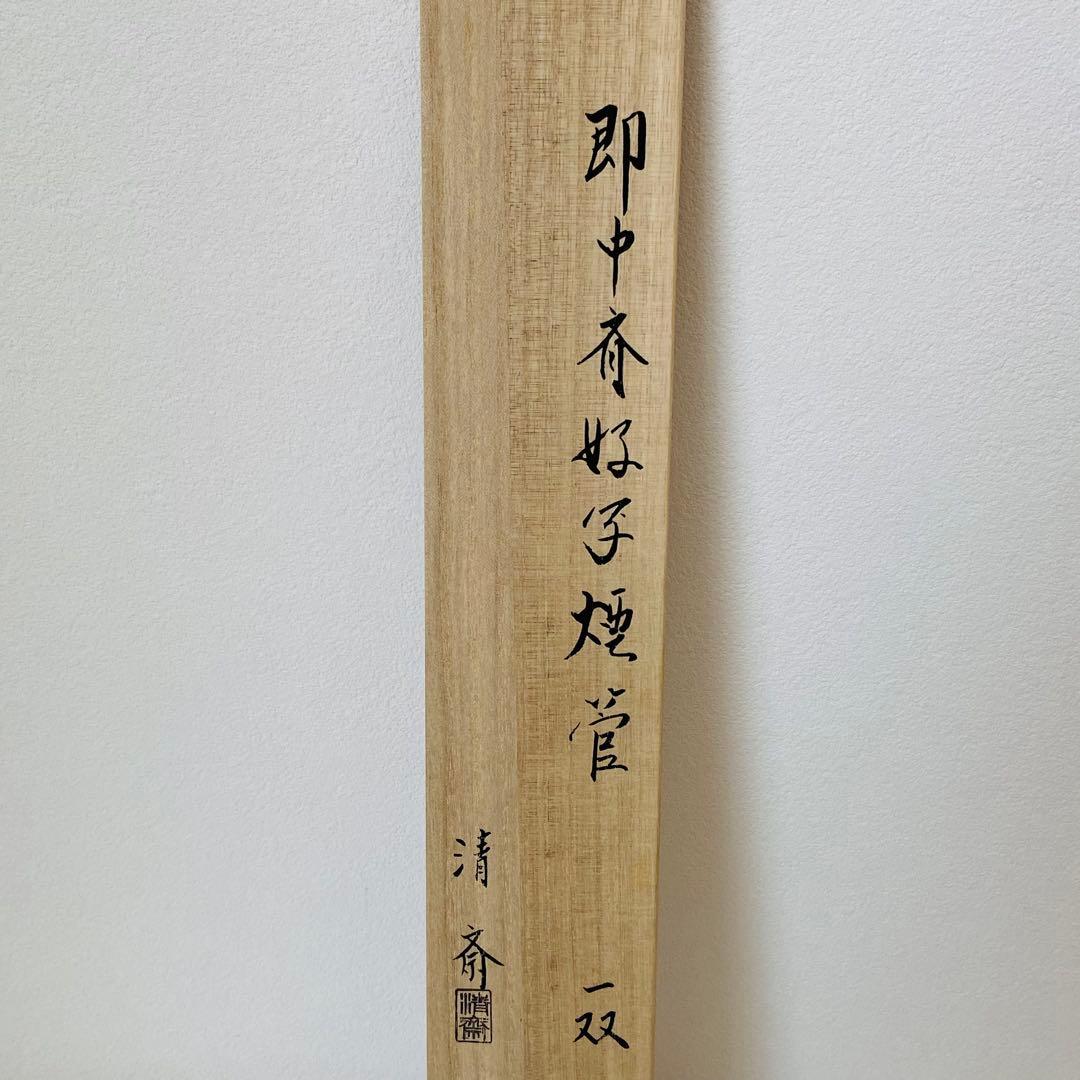 即中斎好写煙管 一双
清斎
清斎